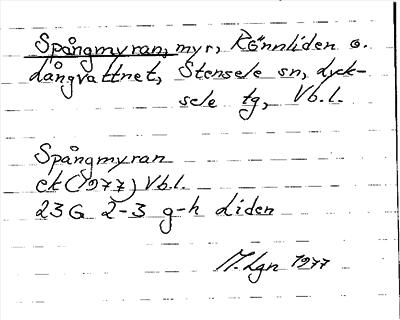 Spångmyran, myr, Rönnliden o.
Långvattnet, Stensele sn, Lyck-
sele tg, Vb.l.
Spångmyran
ek (1977) Vb.l.
23G 2-3 g-h Liden
M. Lgn 1977